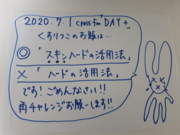 2020.7.1 cross fm "DAY+"
くすりこのお題は…
◎ 「スキンヘッドの活用法」
× 「ヘッドの活用法」
です！ごめんなさい!!
再チャレンジお願いします!!